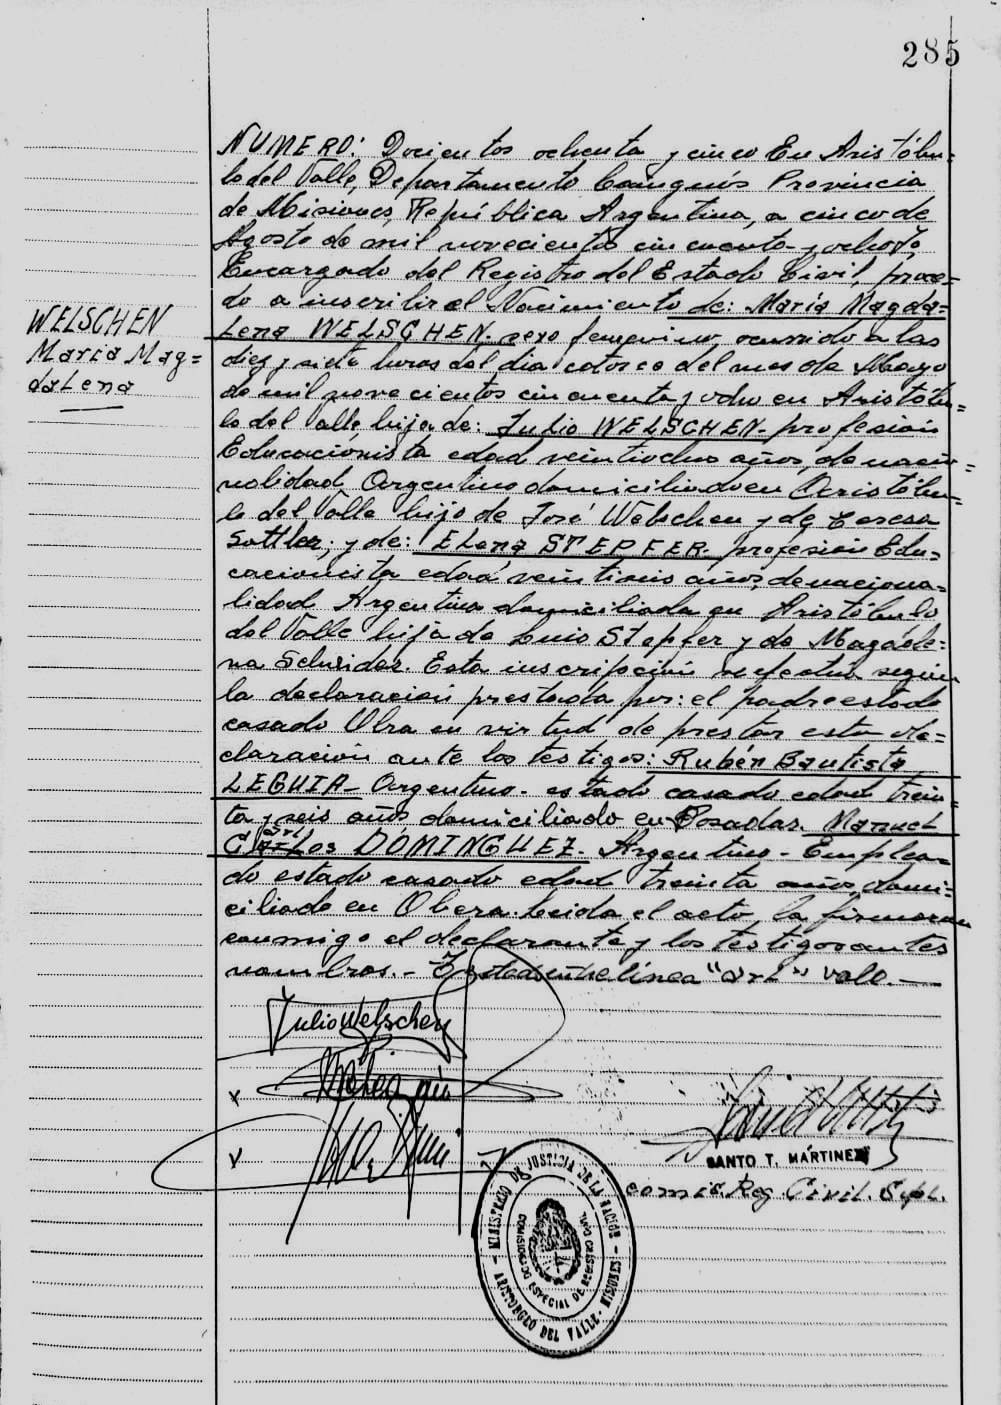 285
NUMERO: Docientos ochenta y cinco En Aristóbu=
lo del Valle, Departamento Cainguás Provincia
de Misiones, República Argentina, a cinco de
Agosto de mil novecientos cincuenta y ocho Yo,
Encargado del Registro del Estado Civil, proce=
do a inscribir el Nacimiento de: María Magda=
Lena WELSCHEN. sexo femenino, ocurrido a las
diez y siete horas del dia catorce del mes de Mayo
de mil novecientos cincuenta y ocho en Aristóbu=
lo del Valle hija de: Julio WELSCHEN- profesión
Educacionista edad veintiocho años, de nacio=
nalidad Argentino domiciliado en Aristóbu=
lo del Valle hijo de José Welschen y de Teresa
Sottler; y de: ELena STEPFER- profesión Edu=
cacionista edad veintiseis años, de naciona-
lidad Argentina domiciliada en Aristóbulo
del Valle hija de Luis Stepfer y de Magdale=
na Schsider. Esta inscripción se efectúa según
la declaración prestada por: el padre estado
casado Obra en virtud de prestar esta de=
claración ante los testigos: Rubén Bautista
LEGUIA- Argentino- estado casado edad trein=
ta y seis años domiciliado en Posadas. Manuel
CarLos DOMINGUEZ- Argentino- Emplea=
do estado casado edad treinta años, domi=
ciliado en Obera. Leida el acto, la firmaron
conmigo el declarante y los testigos antes
nombros.- Testado entrelínea "arl" vale.-
WELSCHEN
María Mag=
daLena
Julio Welschen
SANTO T. MARTINEZ
comis. Reg. Civil. Supl.
MINISTERIO DE JUSTICIA DE LA NACION - MISIONES - ARISTOBULO DEL VALLE -
COMISIONADO ESPECIAL DE REGISTRO CIVIL